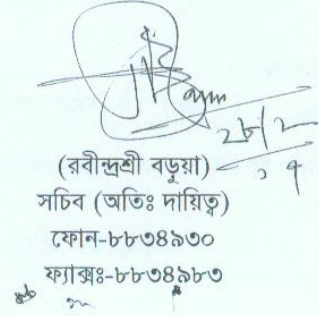 ২৮/২
(রবীন্দ্রশ্রী বড়ুয়া)
সচিব (অতিঃ দায়িত্ব)
ফোন-৮৮৩৪৯৩০
ফ্যাক্সঃ-৮৮৩৪৯৮৩